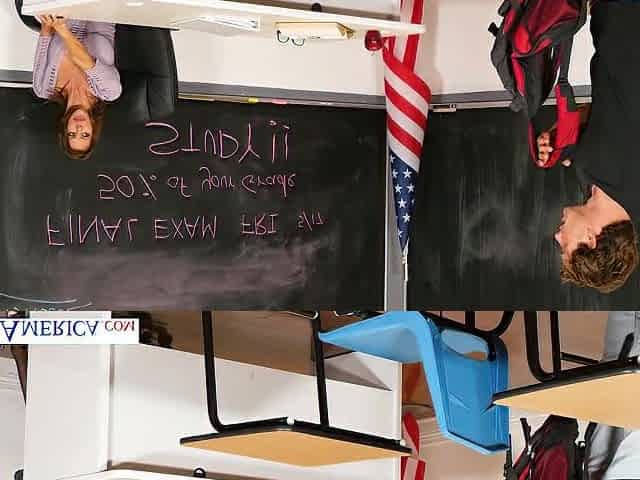 FINAL EXAM FRI 5/17
50% of your Grade
STUDY!!
AMERICA.COM